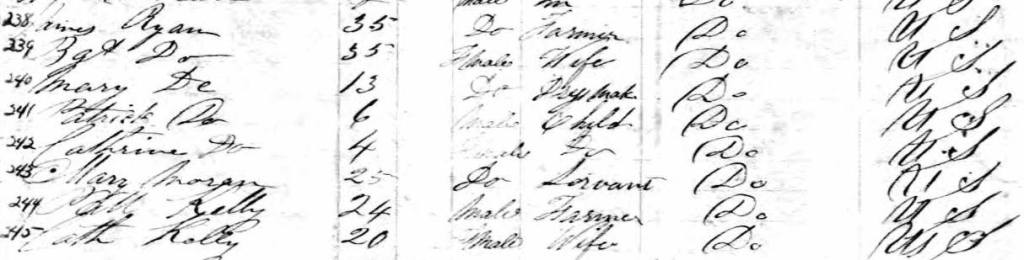 238 James Ryan 35 Do Farmer Do U S
239 Bgt Do 35 Female Wife Do U S
240 Mary Do 13 Do Do U S
241 Patrick Do 6 Male Child Do U S
242 Cathrine Do 4 Female Do Do U S
243 Mary Moran 25 Do Servant Do U S
244 Patk Kelly 24 Male Farmer Do U S
245 Cath Kelly 20 Female Wife Do U S